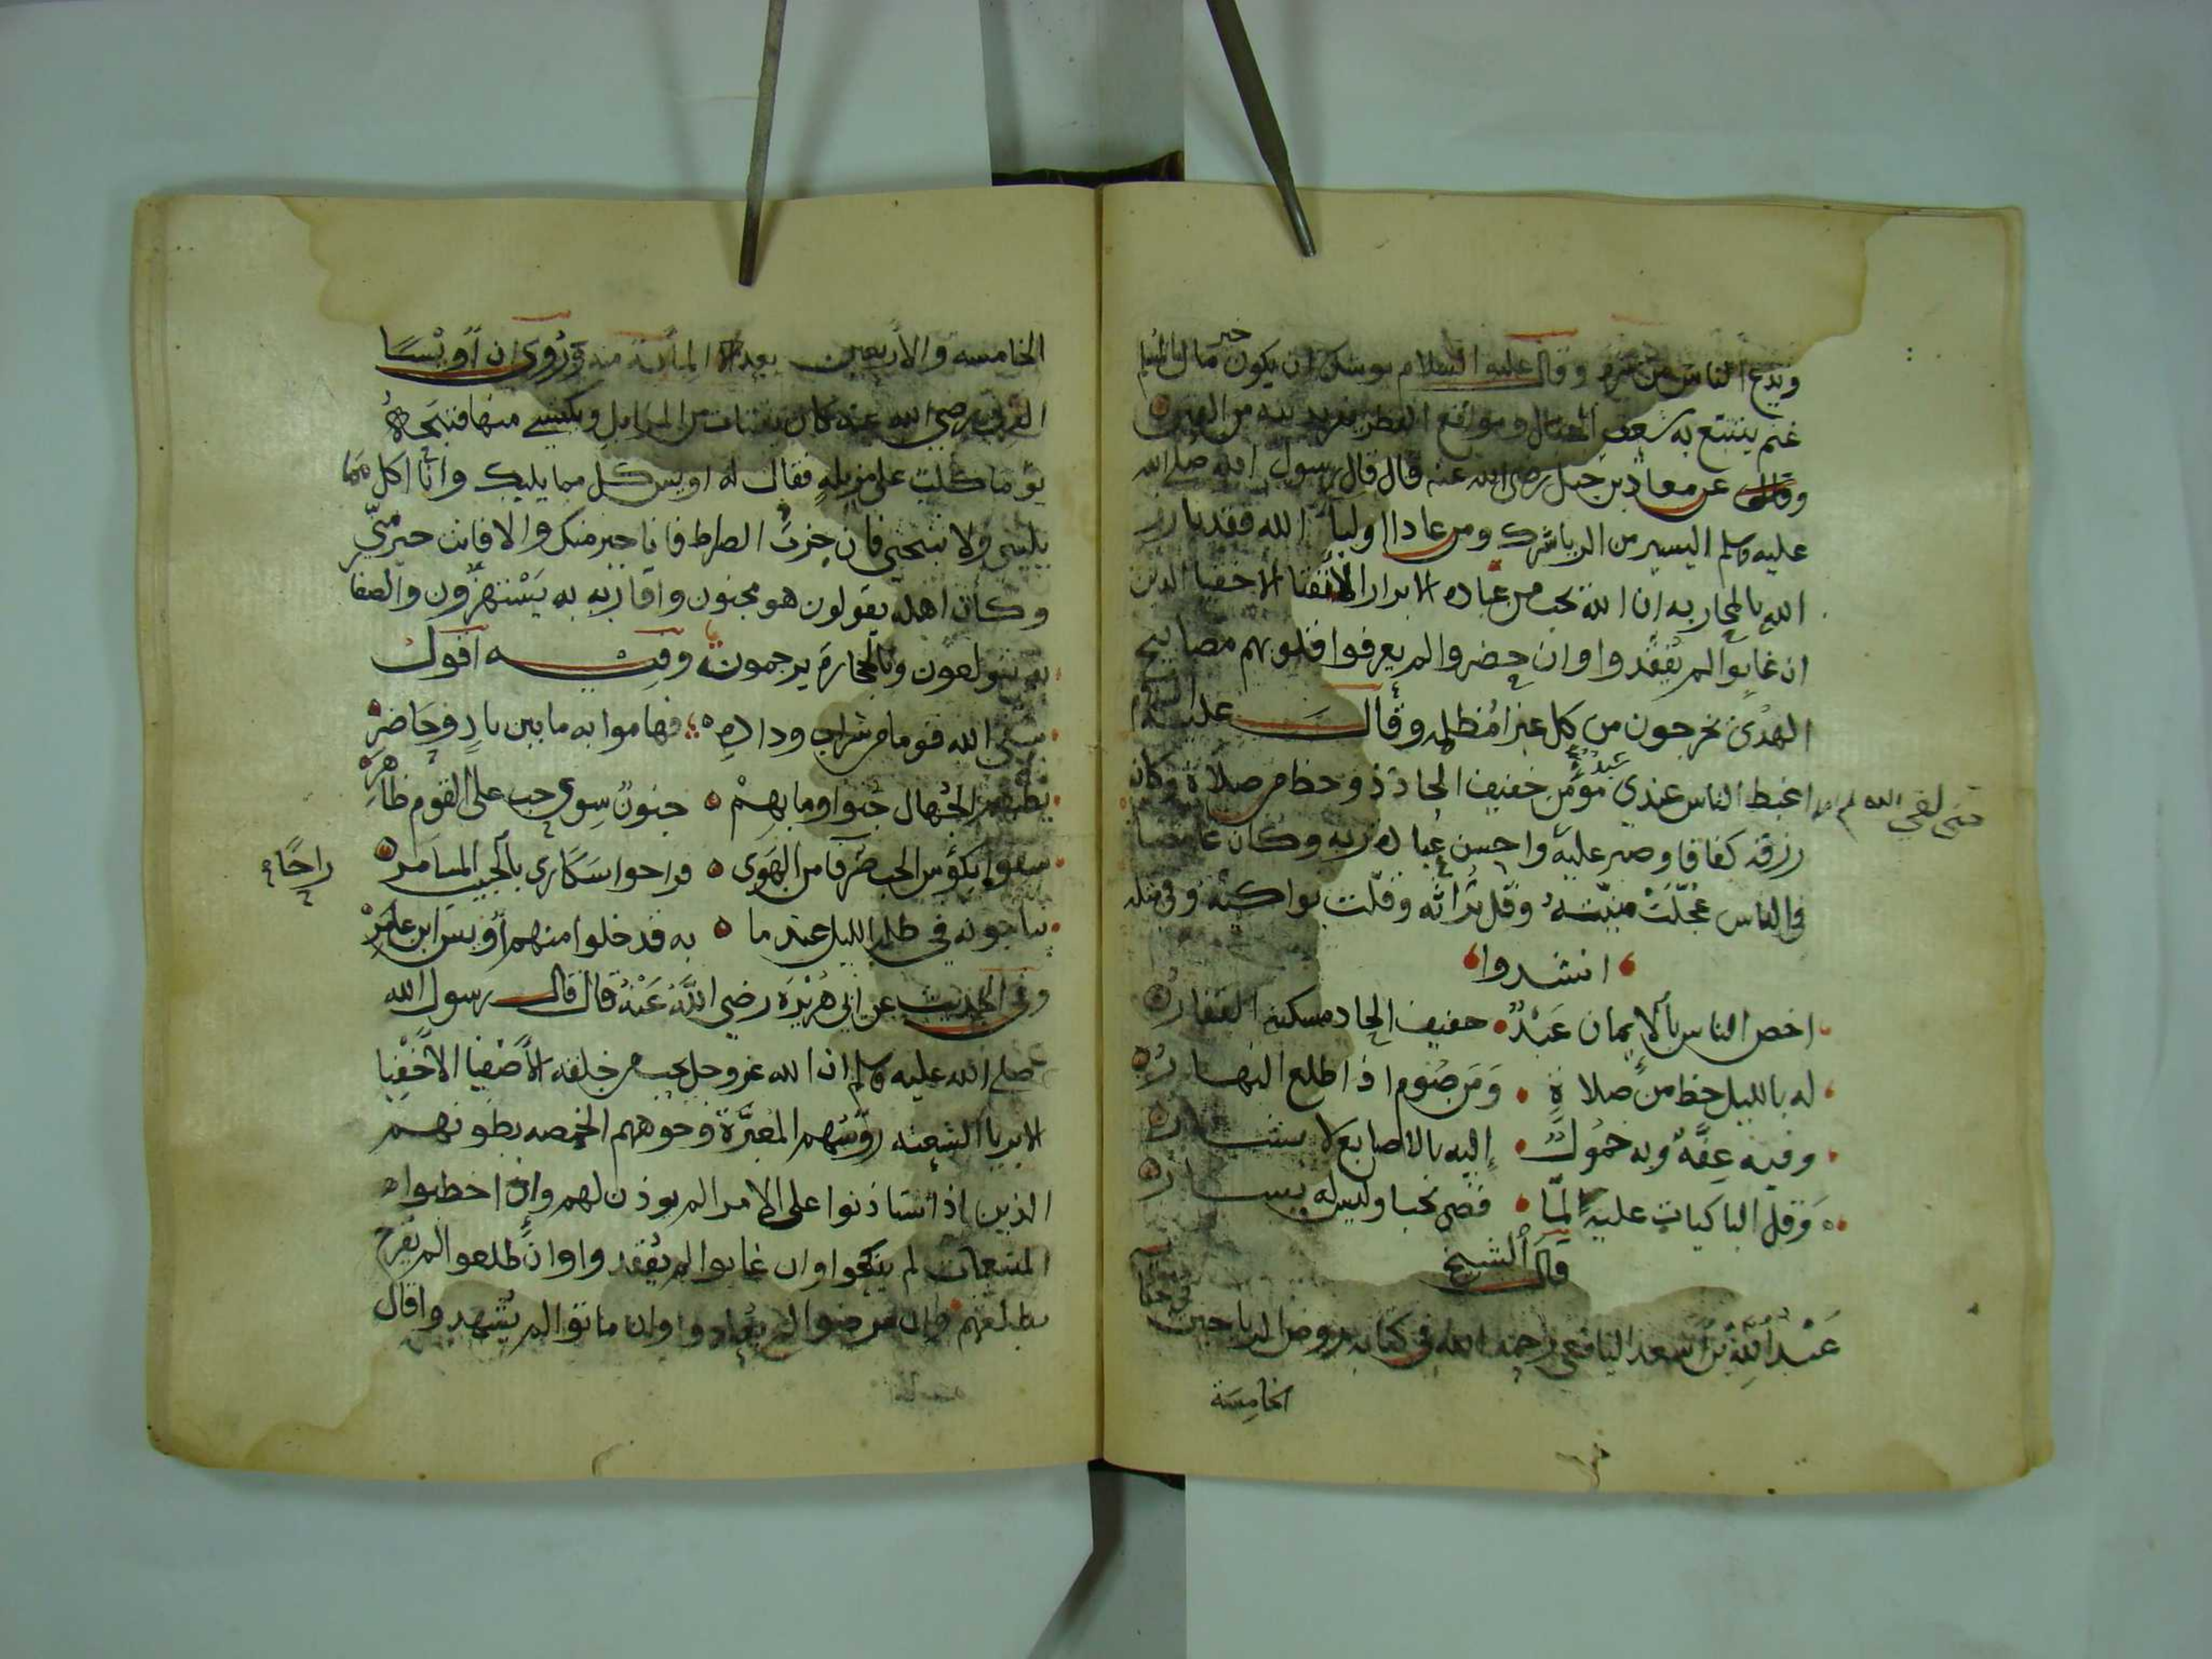 ويدع الناس من شره وقال عليه السلام يوشك ان يكون خير مال المسلم
غنم يتتبع به شعف الجبال ومواقع القطر يفر بدينه من الفتن
وقال عن معاذ بن جبل رضي الله عنه قال قال رسول الله صلى الله
عليه وسلم اليسير من الرياء شرك ومن عادا اوليا الله فقد بارز
الله بالمحاربه ان الله يحب من عباده الابرار الاتقيا الاخفيا الذين
ان غابوا لم يفقدوا وان حضروا لم يعرفوا قلوبهم مصابيح
الهدى يخرجون من كل غبرا مظلمه وقال عليه السلام
اغبط الناس عندي مؤمن خفيف الحاذ ذو حظ من صلاة وكان
رزقه كفافا وصبر عليه حتى لقي الله
واحسن عباده ربه وكان غامضا
في الناس عجلت منيته وقل تراثه وقلت بواكيه وفي مثله
انشدوا
اخص الناس بالايمان عبد خفيف الحاذ مسكنه القفار
له بالليل حظ من صلاة ومن صوم اذا طلع النهار
وفيه عفة وبه خمول اليه بالاصابع لا يشار
وقل الباكيات عليه لما قضى نحبا وليس له يسار
قال الشيخ
عبد الله بن اسعد اليافعي رحمه الله في كتابه روض الرياحين في حكاية
الخامسة
الخامسه والاربعين بعد المائة منه وروي ان أويسا
القرني رضي الله عنه كان يقتات من المزابل ويكتسي منها فنبحه
يوما كلب على مزبله فقال له اويس كل مما يليك وانا اكل مما
يليني ولا تنبحني فان جزت الصراط فانا خير منك والا فانت خير مني
وكان اهله يقولون هو مجنون واقاربه به يستهزؤن والصغا
به يتولعون وبالحجارة يرجمون وفيه اقول
سقى الله قوما من شراب وداده فهاموا به ما بين باد وحاضر
يظنهم الجهال جنوا وما بهم جنون سوى حب على القوم ظاهر
سقوا بكؤس الحب صرفا من الهوى فراحوا سكارى بالحبيب المسامر
راحا
يناجونه في ظلم الليل عند ما به قد خلوا منهم أويس ابن عامر
وفي الحديث عن ابي هريرة رضي الله عنه قال قال رسول الله
صلى الله عليه وسلم ان الله عز وجل يحب من خلقه الأصفيا الأخفيا
الابريا الشعثه رؤسهم المغبرة وجوههم الخمصه بطونهم
الذين اذا استاذنوا على الامرا لم يوذن لهم وان خطبوا
المتنعمات لم ينكحوا وان غابوا لم يفقدوا وان طلعوا لم يفرح
بطلعتهم وان مرضوا لم يعادوا وان ماتوا لم يشهدوا قال